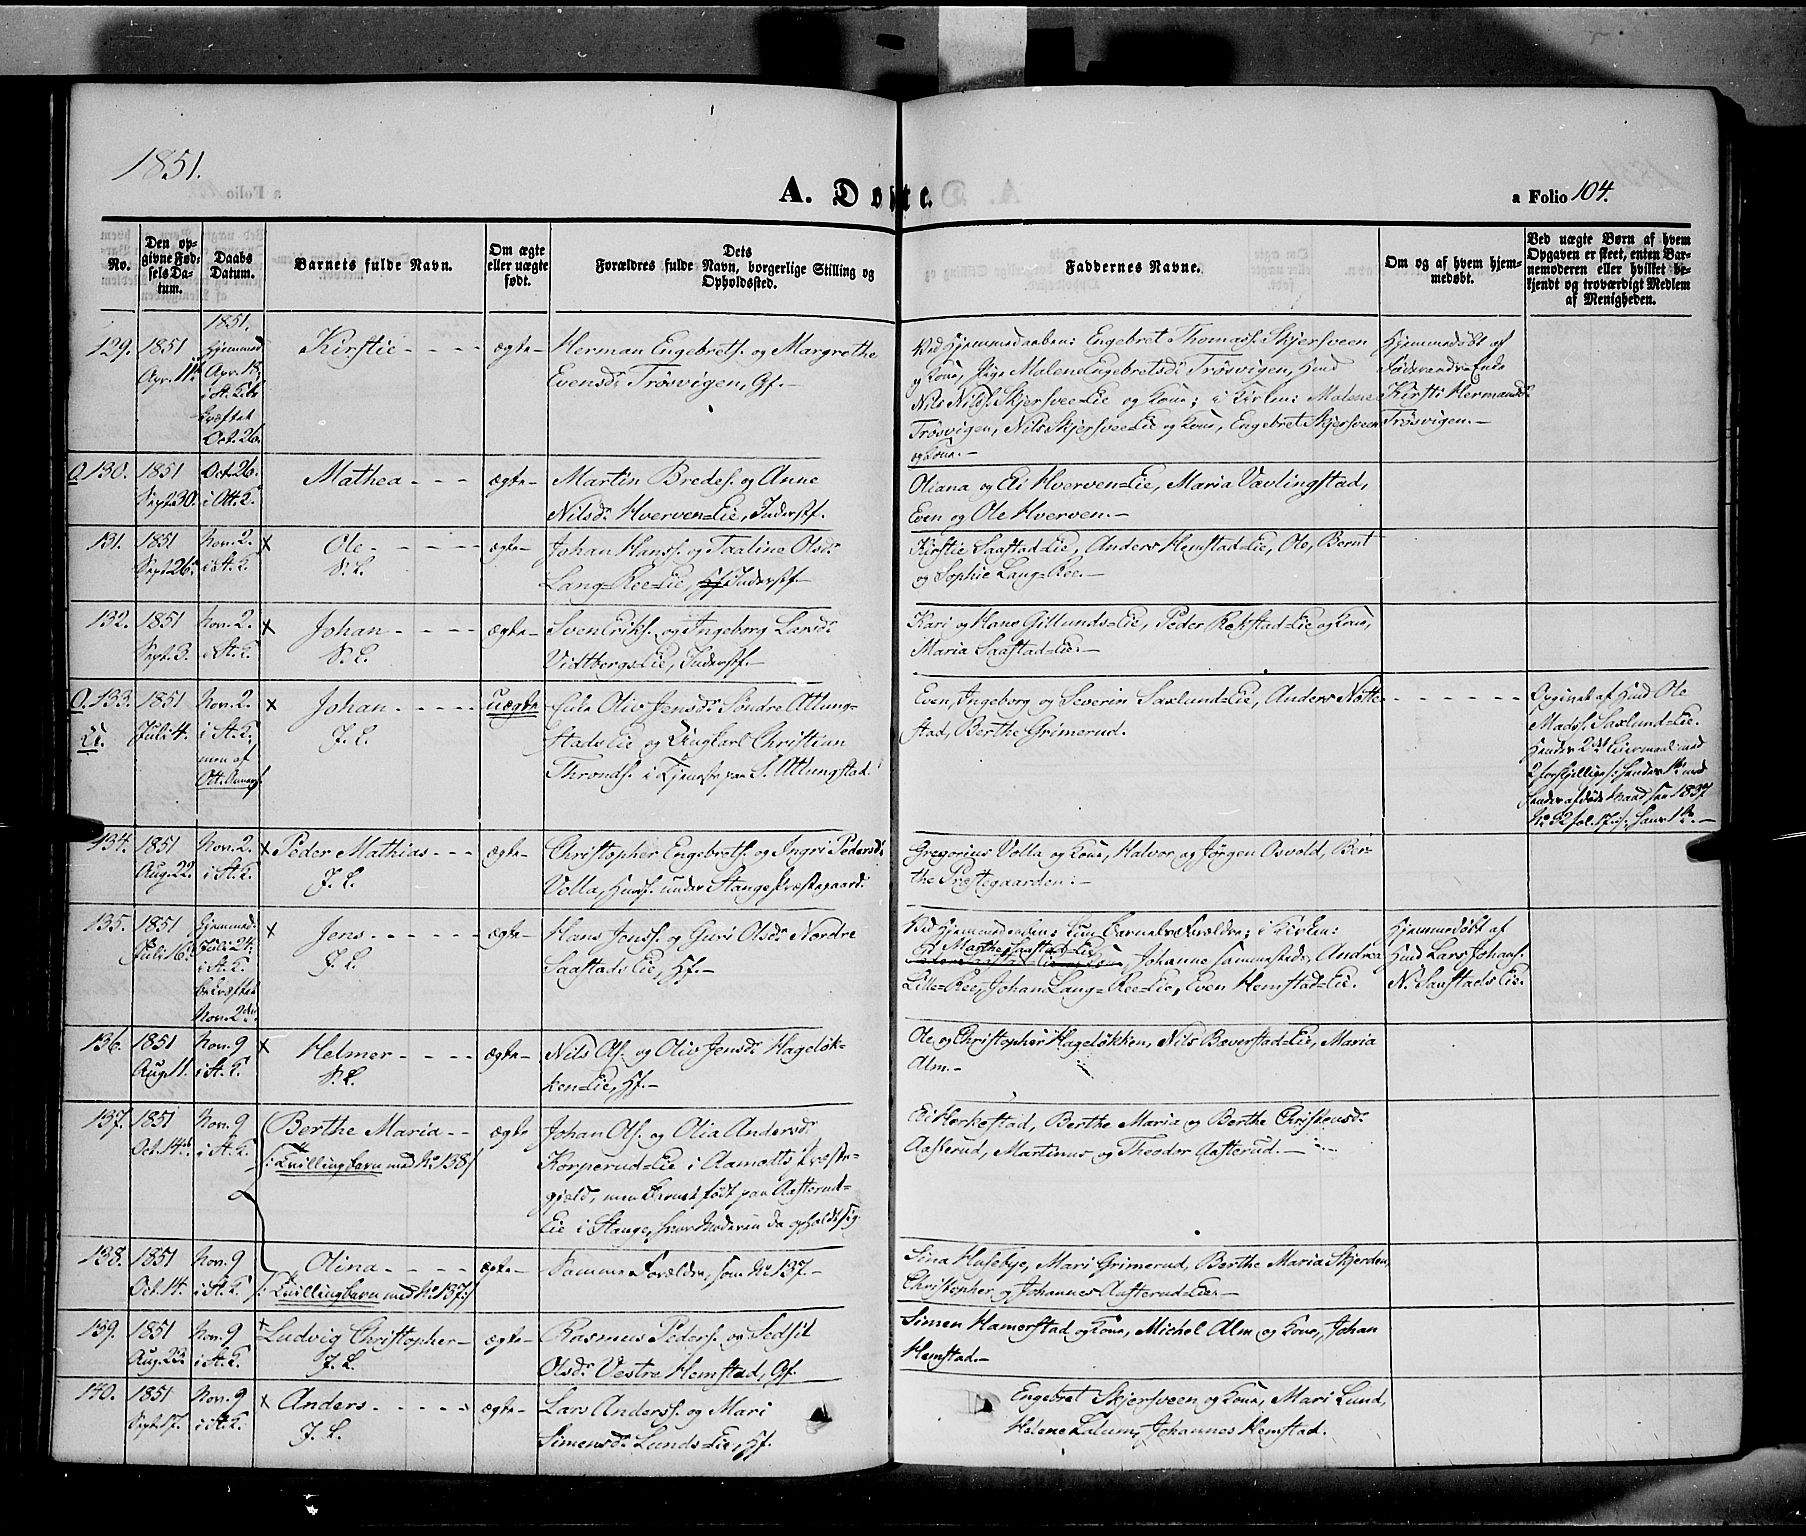 1851.
A. Døbte.
a Folio 104.
No.
Den opgivne Fødsels Datum.
Daabs Datum.
Barnets fulde Navn.
Om ægte eller uægte født.
Dets Forældres fulde Navn, borgerlige Stilling og Opholdssted.
Faddernes Navne.
Om og af hvem hjemmedøbt.
Ved uægte Børn af hvem Opgaven er skeet, enten Barnemoderen eller hvilket bekjendt og troværdigt Medlem af Menigheden.
129.
1851
Apr. 11te
1851.
Hjemmed.
Apr. 18
i St. K. be
kræftet
Oct. 26.
Kirstie
ægte
Herman Engebrets. og Margrethe
Evensdr Trøsvigen, Gf.
Ved Hjemmedaaben: Engebret Thomass. Skjersveen
og Kone, Pige Malene Engebretsdr Trøsvigen, Husd
Nils Nilss. Skjersvee=Eie og Kone; i Kirken: Malene
Trøsvigen, Nils Skjersvee=Eie og Kone, Engebret Skjersveen
og Kone.
Hjemmedøbt af
Kirsti Hermandsdr
Trøsvigen.
O. 130.
1851
Sept. 30.
Oct. 26.
i Ott. K.
Mathea
ægte
Martin Bredes. og Anne
Nilsdr Hverven=Eie, Inderstf.
Oliana og Eli Hverven=Eie, Maria Vavlingstad,
Even og Ole Hverven.
131.
1851
Sept. 26
Nov. 2.
i St. K.
x Ole
ægte
Johan Hanss. og Taaline Olsdr
Lang=Ree=Eie, Hf Inderstf.
Kirstie Saastad=Eie, Anders Hemstad=Eie, Ole, Bernt
og Sophie Lang=Ree.
132.
1851
Sept. 3.
Nov. 2.
i St. K.
x Johan
ægte
Sven Eriks. og Ingeborg Larsdr
Vidtbergs=Eie, Inderstf.
Kari og Hans Gillunds=Eie, Peder Rekstad=Eie og Kone,
Maria Saastad=Eie.
O. 133.
U.
1851
Juli 4.
Nov. 2
i St. K.
men af
Ott. Annexs.
x Johan
J. L.
uægte
Pige Oliv Jensdr Søndre Atlung-
stads Eie og Ungkarl Christian
Thronds. i Tjeneste paa S. Atlungstad.
Even, Ingeborg og Severin Saxlund=Eie, Anders Nøtte-
stad, Berthe Grimerud.
Opgivet af Husd Ole
Madss. Saxlund=Eie.
Hendes 2det Leiermaal med
2 forskjellige
134.
1851
Aug. 22.
Nov. 2
i St. K.
x Peder Mathias
J. L.
ægte
Christopher Engebrets. og Ingri Pedersdr
Volla, Husf. under Stange Præstegaard.
Gregorius Volla og Kone, Halvor og Jørgen Osvold, Ber-
the Præstegaarden.
135.
1851
Juli 16.
Hjemmed.
Juli 24.
i St. K.
bekræftet
Nov. 2den
x Jens
J. L.
ægte
Hans Jenss. og Guri Olsdr Nordre
Saastads Eie, Hf.
Ved Hjemmedaaben: kun Barnets Forældre; i Kirken:
Marthe Saastad=Eie
Johanne sammesteds, Andrea
Lille=Ree, Johan Lang=Ree=Eie, Even Hemstad=Eie.
Hjemmedøbt af
Husd Lars Johans.
N. Saastads Eie.
136.
1851
Aug. 11.
Nov. 9
i St. K.
x Helmer
ægte
Nils Ols. og Oliv Jensdr Hageløk-
ken=Eie, Hf.
Ole og Christopher Hageløkken, Nils Bæverstad=Eie, Maria
Alm.
137.
1851
Oct. 14de
Nov. 9
i St. K.
Berthe Maria
/: Tvillingbarn med No 138 /
ægte
Johan Ols. og Olia Andersdr
Korperud=Eie i Aamodts Præste-
gjæld, men Barnet født paa Aasterud-
Eie i Stange, hvor Moderen da opholdt sig.
Eli Horkestad, Berthe Maria og Berthe Christensdr
Aasterud, Martinus og Theodor Aasterud.
138.
1851
Oct. 14.
Nov. 9
i St. K.
Olina
/: Tvillingbarn med No 137 :/
ægte
Samme Forældre, som No 137.
Sina Husebye, Mari Grimerud, Berthe Maria Skjerden,
Christopher og Johannes Aasterud=Eie.
139.
1851
Aug. 23
Nov. 9
i St. K.
x Ludvig Christopher
J. L.
ægte
Rasmus Peders. og Sedsil
Olsdr Vestre Hemstad, Gf.
Simen Hamerstad og Kone, Michel Alm og Kone, Johan
Hemstad.
140.
1851
Sept. 17.
Nov. 9
i St. K.
x Anders
J. L.
ægte
Lars Anderss. og Mari
Simensdr Lunds=Eie, Hf.
Engebret Skjersveen og Kone, Mari Lund,
Helene Lalum, Johannes Hemstad.